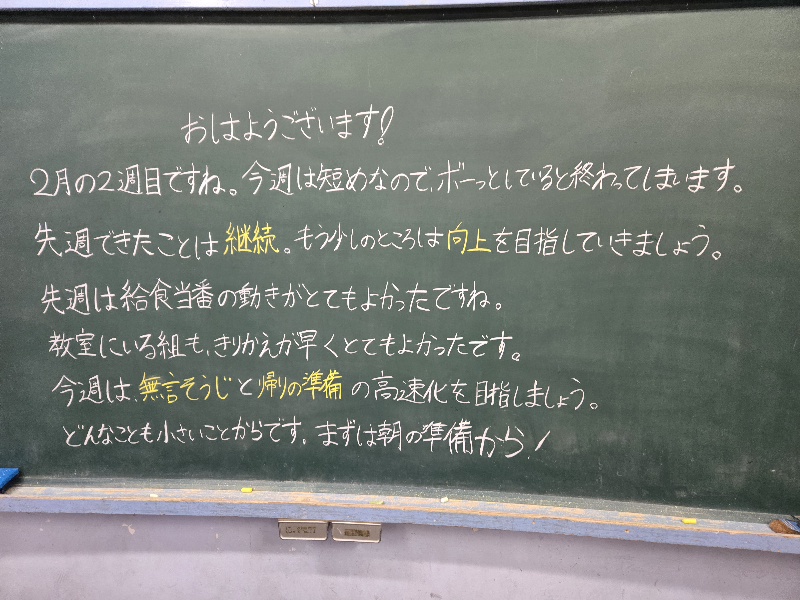 おはようございます!
2月の2週目ですね。今週は短めなので、ボーっとしていると終わってしまいます。
先週できたことは継続。もう少しのところは向上を目指していきましょう。
先週は給食当番の動きがとてもよかったですね。
教室にいる組も、きりかえが早くとてもよかったです。
今週は、無言そうじと帰りの準備の高速化を目指しましょう。
どんなことも小さいことからです。まずは朝の準備から!